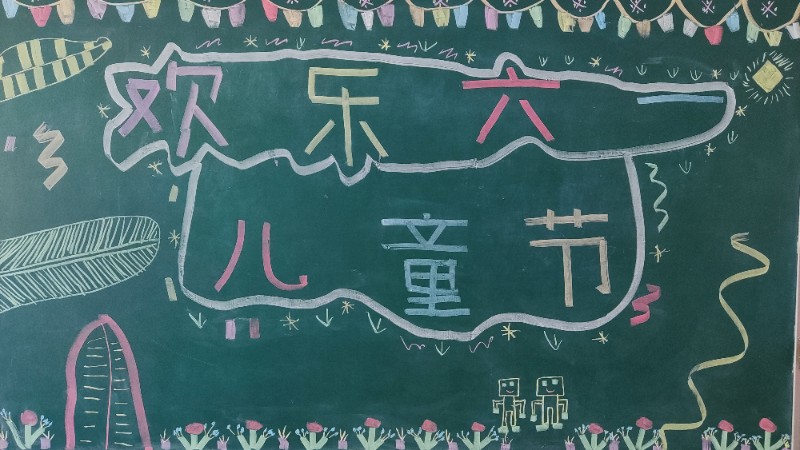 欢乐六一
儿童节